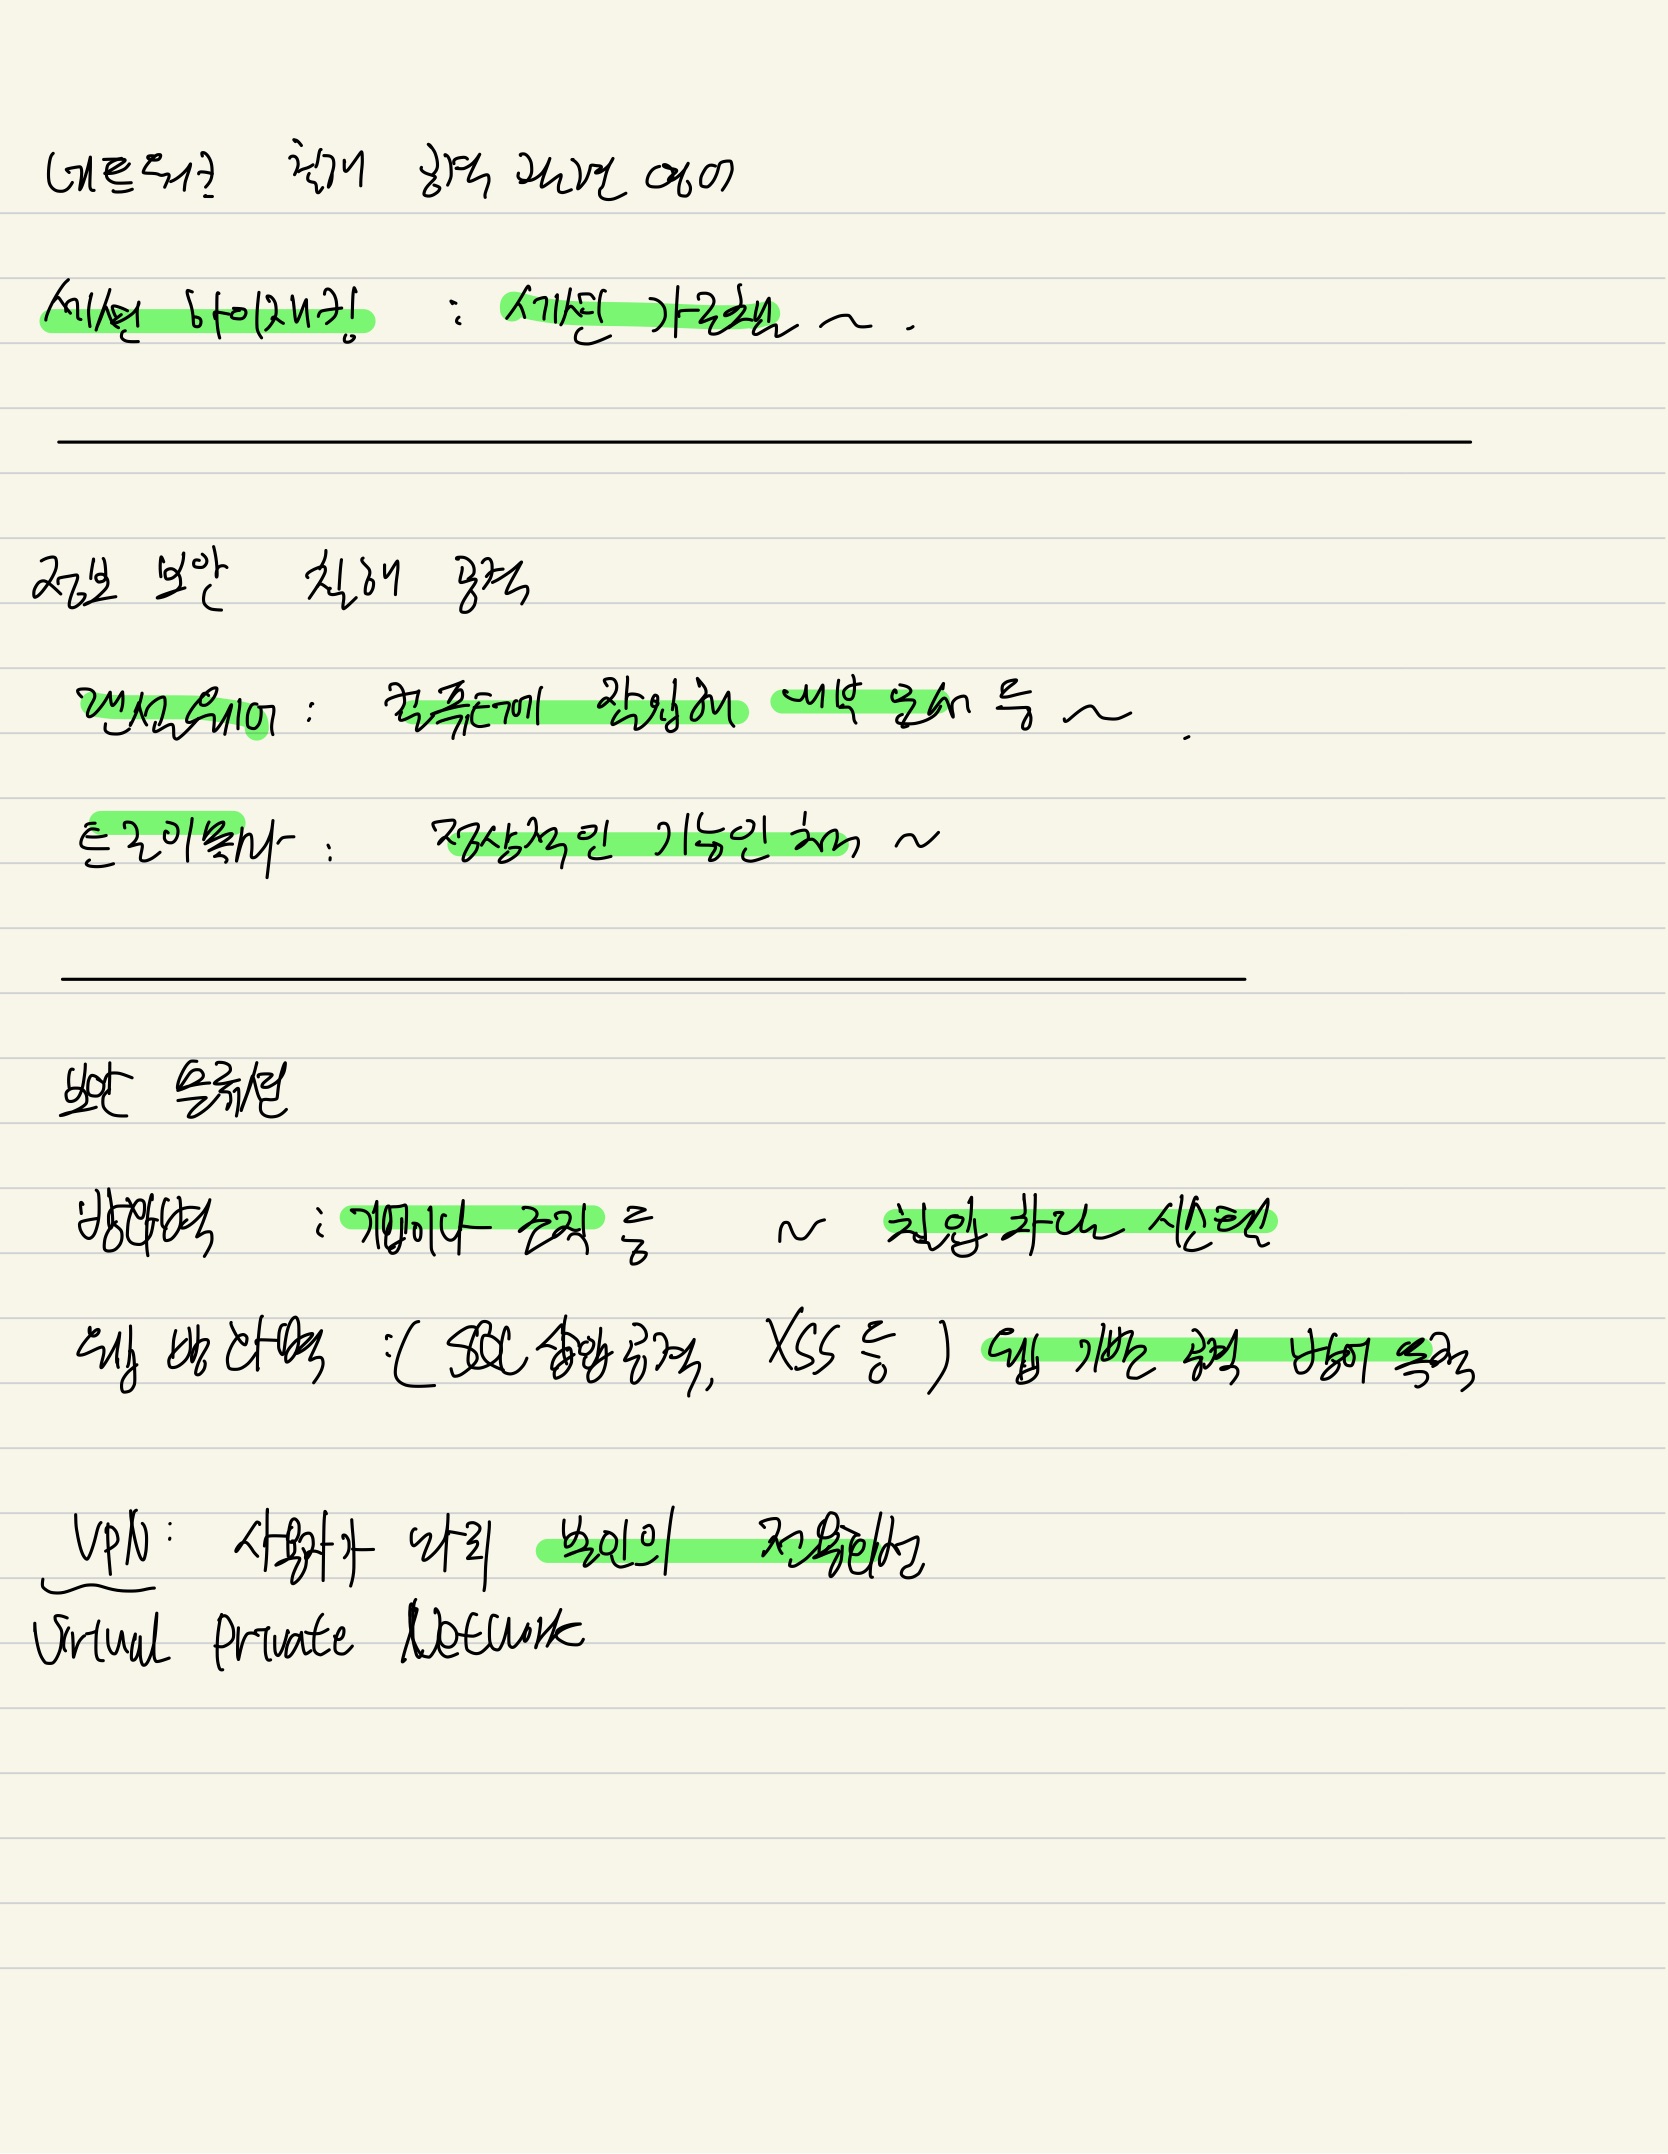 네트워크 침해 공격 관련 용어
세션 하이재킹 : 세션 가로챔 ~ .
정보 보안 침해 공격
랜섬웨어 : 컴퓨터에 잠입해 내부 문서 등 ~ .
트로이목마 : 정상적인 기능인 척 ~
보안 솔루션
방화벽 : 기업이나 조직 등 ~ 침입 차단 시스템
웹 방화벽 : ( SQL 삽입 공격, XSS 등 ) 웹 기반 공격 방어 목적
VPN : 사용자가 마치 본인의 전용회선
Virtual Private Network